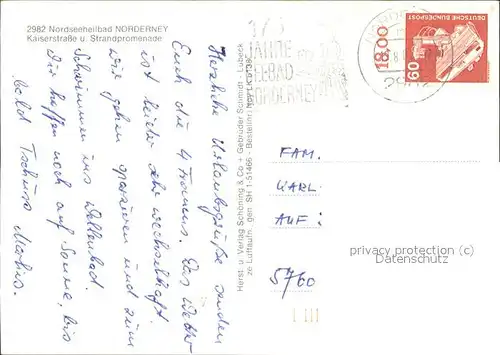 2982 Nordseeheilbad NORDERNEY
Kaiserstraße u. Strandpromenade
Herzliche Urlaubsgrüße senden
Euch die 4 Trommus. Das Wetter
ist leider sehr wechselhaft.
Wir gehen spazieren und zum
Schwimmen ins Wellenbad.
Wir hoffen noch auf Sonne, bis
bald Tschüss
Herst. u. Verlag Schöning & Co + Gebrüder Schmidt - Lübeck
ze Luftaufn. gen. SH 1-51466 - Bestellnr.
175
JAHRE
SEEBAD
NORDERNEY
DEUTSCHE BUNDESPOST
60
18.00
2982
FAM.
KARL
AUF:
5760
privacy protection (c)
Datenschutz